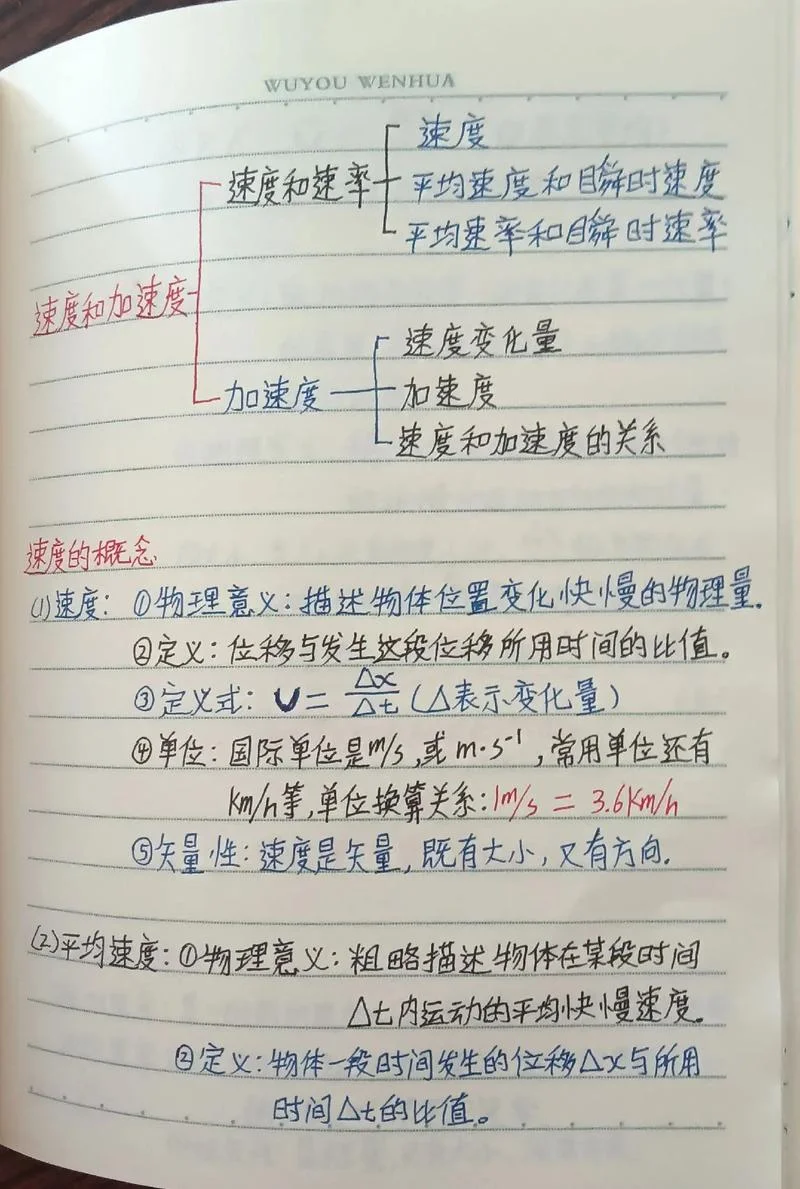 WUYOU WENHUA
速度
速度和速率
平均速度和瞬时速度
平均速率和瞬时速率
速度和加速度
速度变化量
加速度
加速度
速度和加速度的关系
速度的概念
(1)速度：①物理意义：描述物体位置变化快慢的物理量.
②定义：位移与发生这段位移所用时间的比值。
③定义式：v = Δx/Δt (Δ表示变化量)
④单位：国际单位是m/s,或m·s⁻¹,常用单位还有
Km/h等,单位换算关系:1m/s = 3.6Km/h
⑤矢量性：速度是矢量,既有大小,又有方向.
(2)平均速度：①物理意义：粗略描述物体在某段时间
Δt内运动的平均快慢速度。
②定义:物体一段时间发生的位移Δx与所用
时间Δt的比值。